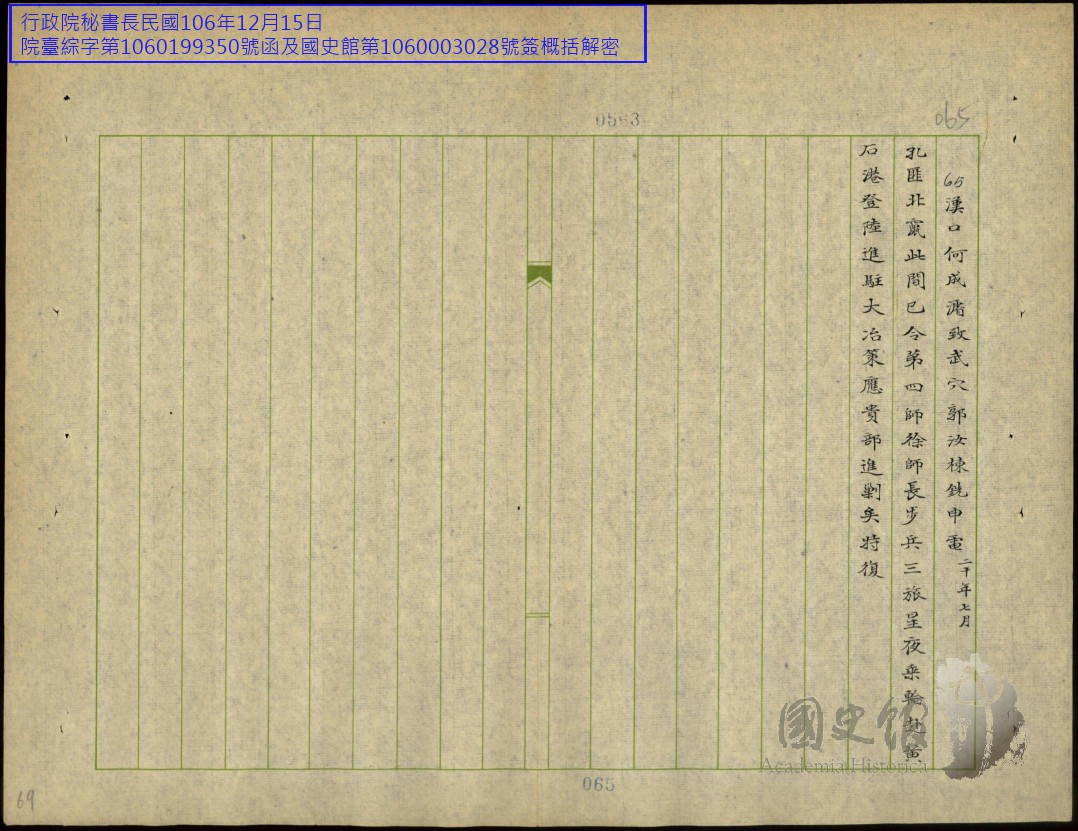 行政院秘書長民國106年12月15日
院臺綜字第1060199350號函及國史館第1060003028號簽概括解密
0563
065
65漢口何成濬致武穴郭汝棟銑申電二十年七月
孔匪北竄此間已令第四師徐師長步兵三旅星夜乘輪赴黃
石港登陸進駐大冶策應貴部進剿矣特復
國史館
Academia Historica
065
69